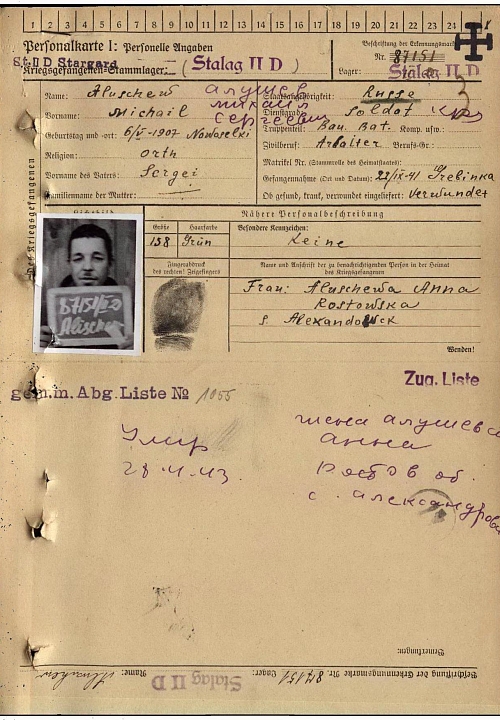 1 2 3 4 5 6 7 8 9 10 11 12 13 14 15 16 17 18 19 20 21 22 23 24
Personalkarte I: Personelle Angaben
Beschriftung der Erkennungsmarke
St. II D Stargard
Nr. 87151
Kriegsgefangenen-Stammlager: (Stalag II D)
Lager: Stalag II D
Name: Aluschew Алушев
Staatsangehörigkeit: Russe
Vorname: Michail Михаил
Dienstgrad: Soldat
Сергеевич
Truppenteil: Bau. Bat. Komp. usw.:
Geburtstag und -ort: 6/V-1907 Nowoselki
Zivilberuf: Arbeiter Berufs-Gr.:
Religion: Orth
Matrikel Nr. (Stammrolle des Heimatstaates):
Vorname des Vaters: Sergei
Gefangennahme (Ort und Datum): 22/IX-41 Grebinka
Familienname der Mutter:
Ob gesund, krank, verwundet eingeliefert: Verwundet
Des Kriegsgefangenen
Nähere Personalbeschreibung
Größe Haarfarbe Besondere Kennzeichen:
158 Grün Keine
Fingerabdruck
des rechten! Zeigefingers
Name und Anschrift der zu benachrichtigenden Person in der Heimat
des Kriegsgefangenen
Frau: Aluschewa Anna
Rostowska
s.
Wenden!
87151 II D
gem.m. Abg. Liste № 1055
Zug. Liste
Умер
жена Алушева
Анна
Ростов об.
с. Александров
Bemerkungen:
Beschriftung der Erkennungsmarke Nr. 87151 Lager: Stalag II D Name: